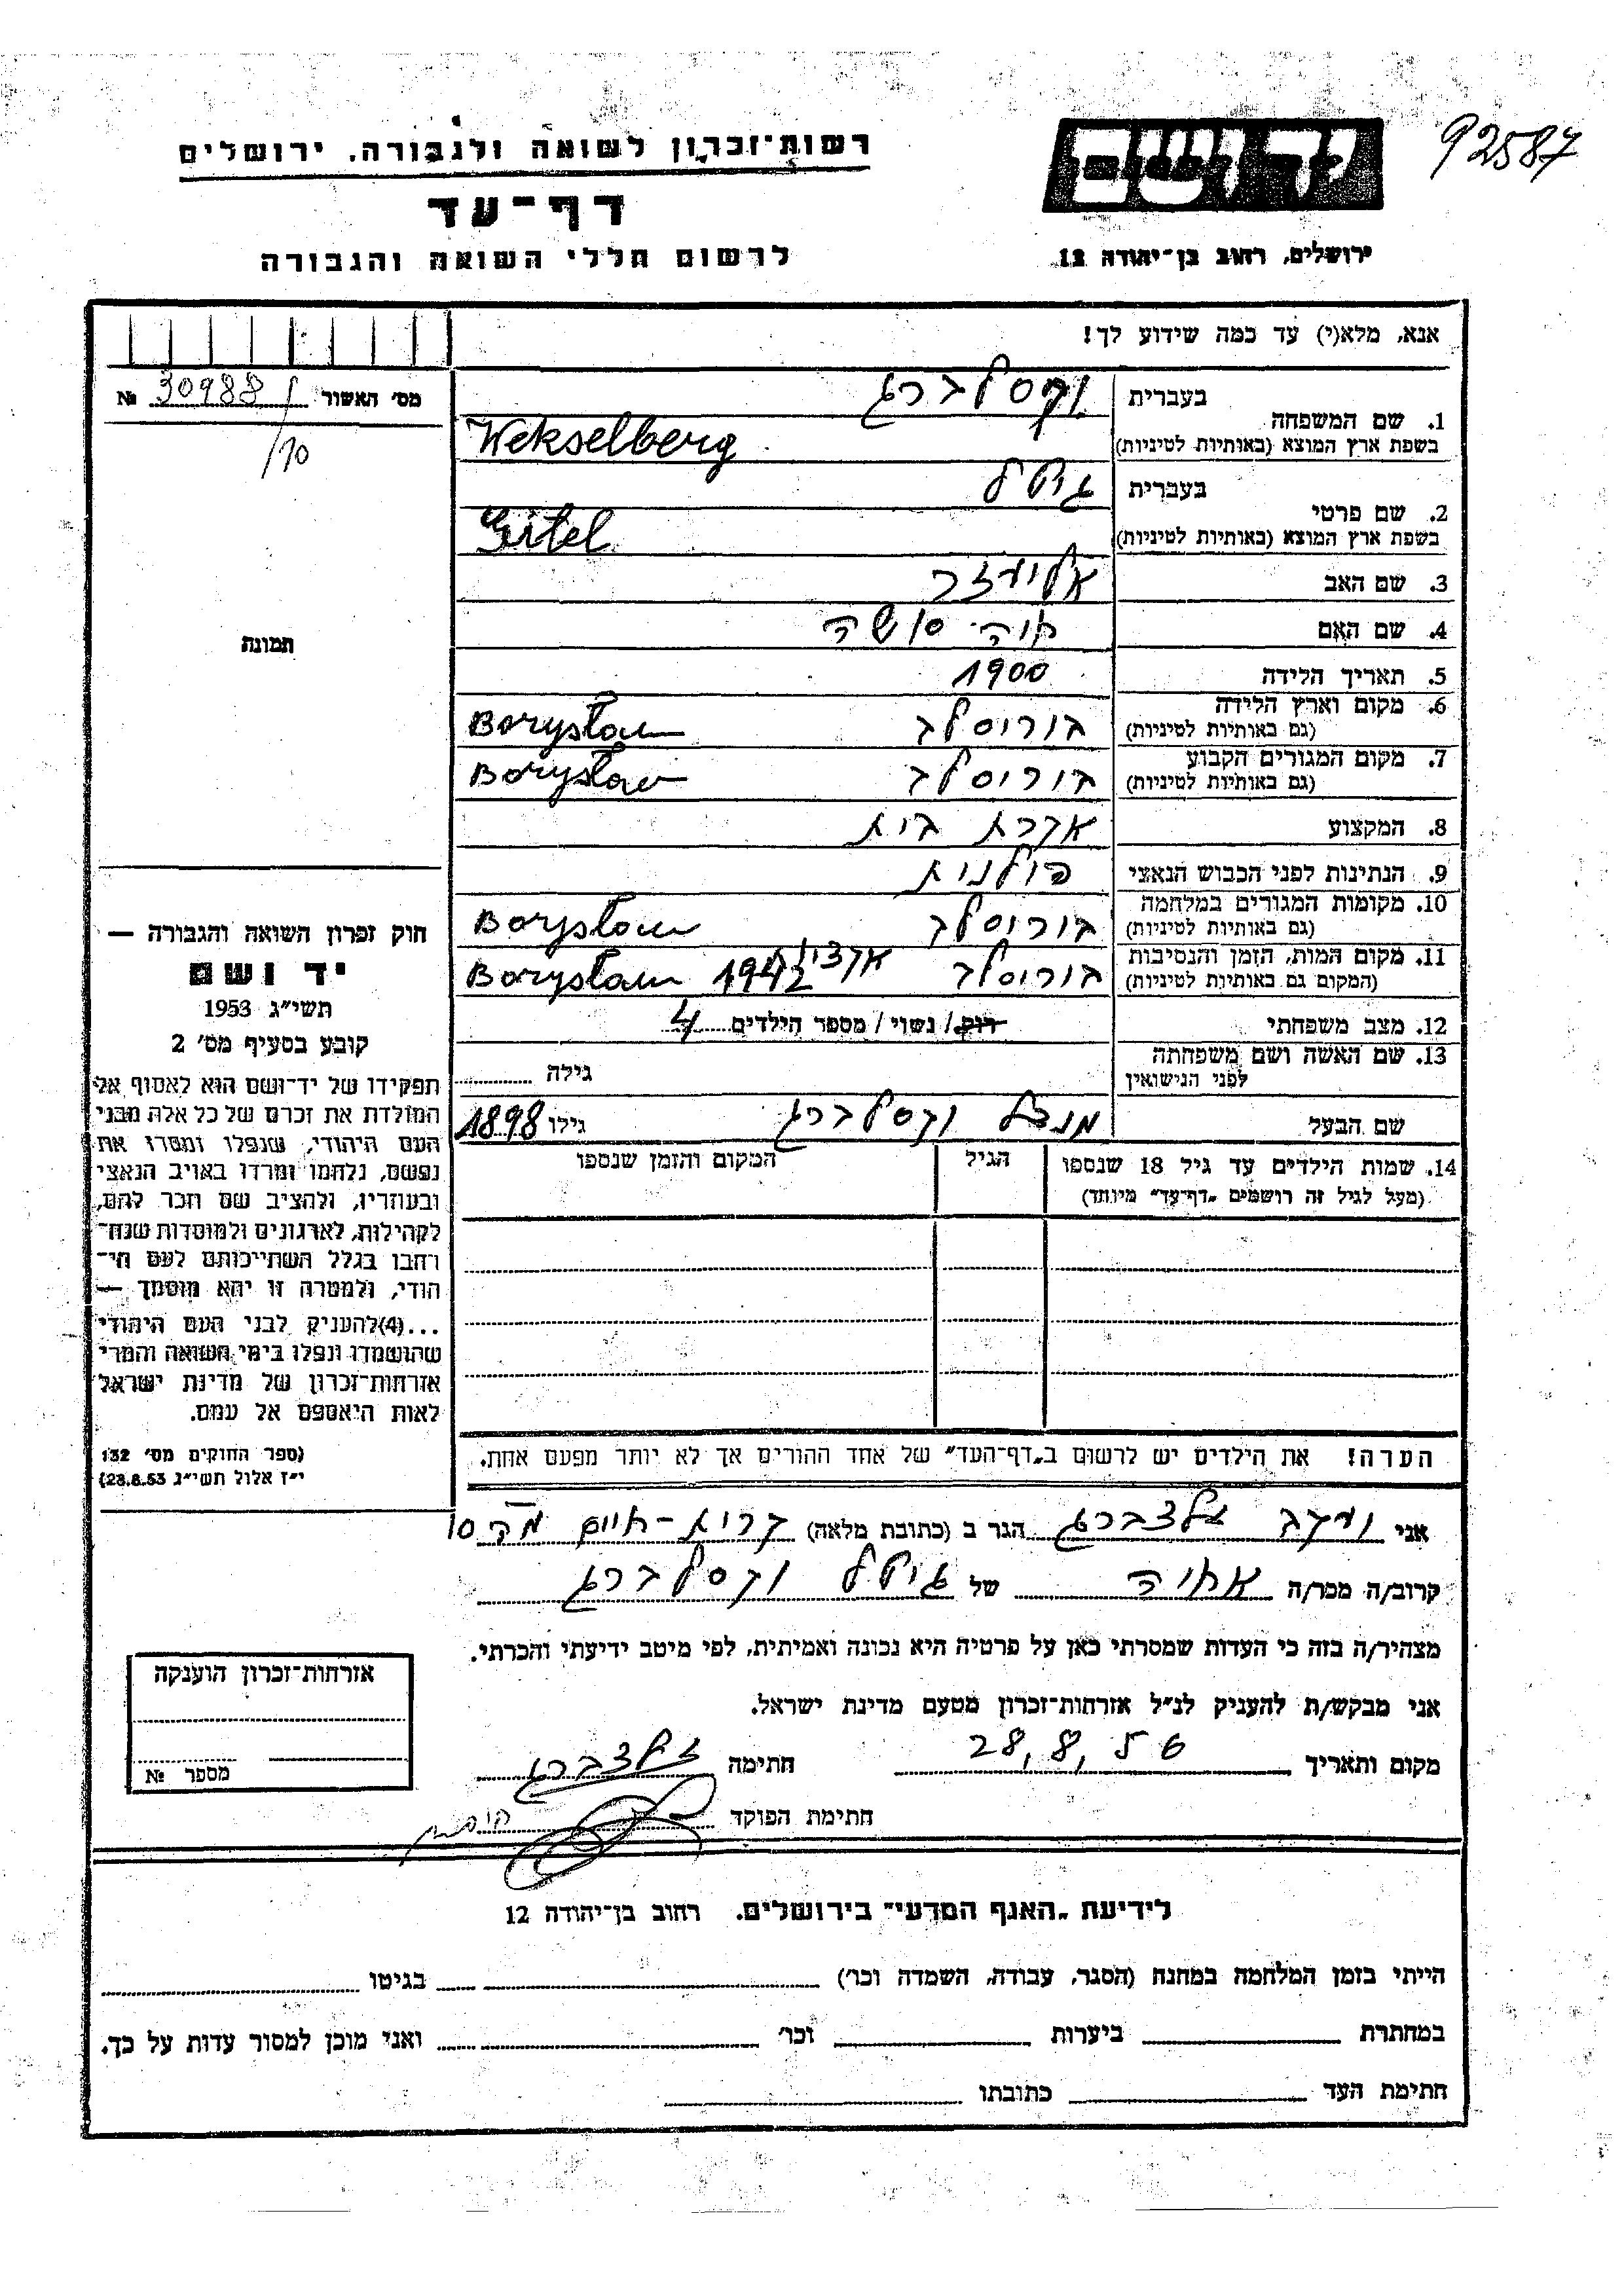 92587
יד ושם
רשות־זכרון לשואה ולגבורה, ירושלים
דף־עד
ירושלים, רחוב בן־יהודה 12
לרשום חללי השואה והגבורה
אנא, מלא(י) עד כמה שידוע לך!
מס׳ האשור № 30988/
/10
1. שם המשפחה
בעברית וקסלברג
בשפת ארץ המוצא (באותיות לטיניות) Wekselberg
2. שם פרטי
בעברית גיטל
בשפת ארץ המוצא (באותיות לטיניות) Gitel
3. שם האב אליעזר
4. שם האם חוה סושה
5. תאריך הלידה 1900
6. מקום וארץ הלידה
(גם באותיות לטיניות) בוריסלב Borysław
7. מקום המגורים הקבוע
(גם באותיות לטיניות) בוריסלב Borysław
8. המקצוע עקרת בית
9. הנתינות לפני הכבוש הנאצי פולנית
10. מקומות המגורים במלחמה
(גם באותיות לטיניות) בוריסלב Borysław
11. מקום המות, הזמן והנסיבות
(המקום גם באותיות לטיניות) בוריסלב אקציות Borysław 1942
12. מצב משפחתי רוק/ נשוי/ מספר הילדים 4
13. שם האשה ושם משפחתה
לפני הנישואין גילה
שם הבעל מנדל וקסלברג גילו 1898
14. שמות הילדים עד גיל 18 שנספו
(מעל לגיל זה רושמים „דף־עד״ מיוחד)
הגיל
המקום והזמן שנספו
תמונה
חוק זכרון השואה והגבורה —
יד ושם
תשי״ג 1953
קובע בסעיף מס׳ 2
תפקידו של יד־ושם הוא לאסוף אל
המולדת את זכרם של כל אלה מבני
העם היהודי, שנפלו ומסרו את
נפשם, נלחמו ומרדו באויב הנאצי
ובעוזריו, ולהציב שם וזכר להם,
לקהילות, לארגונים ולמוסדות שנח־
רבו בגלל השתייכותם לעם הי־
הודי, ולמטרה זו יהא מוסמך —
...(4)להעניק לבני העם היהודי
שהושמדו ונפלו בימי השואה והמרי
אזרחות־זכרון של מדינת ישראל
לאות היאספם אל עמם.
(ספר החוקים מס׳ 132
י״ז אלול תשי״ג 28.8.53)
הערה! את הילדים יש לרשום ב„דף־העד״ של אחד ההורים אך לא יותר מפעם אחת.
אני יעקב זלצברג הגר ב (כתובת מלאה) קרית-חיים
קרוב/ה מכר/ה אחיה של גיטל וקסלברג
מצהיר/ה בזה כי העדות שמסרתי כאן על פרטיה היא נכונה ואמיתית, לפי מיטב ידיעתי והכרתי.
אני מבקש/ת להעניק לנ״ל אזרחות־זכרון מטעם מדינת ישראל.
מקום ותאריך 28,8,56 חתימה זלצברג
חתימת הפוקד
אזרחות־זכרון הוענקה
מספר №
לידיעת „האגף המדעי״ בירושלים. רחוב בן־יהודה 12
הייתי בזמן המלחמה במחנה (הסגר, עבודה, השמדה וכו׳) בגיטו
במחתרת ביערות וכו׳ ואני מוכן למסור עדות על כך.
חתימת העד כתובתו